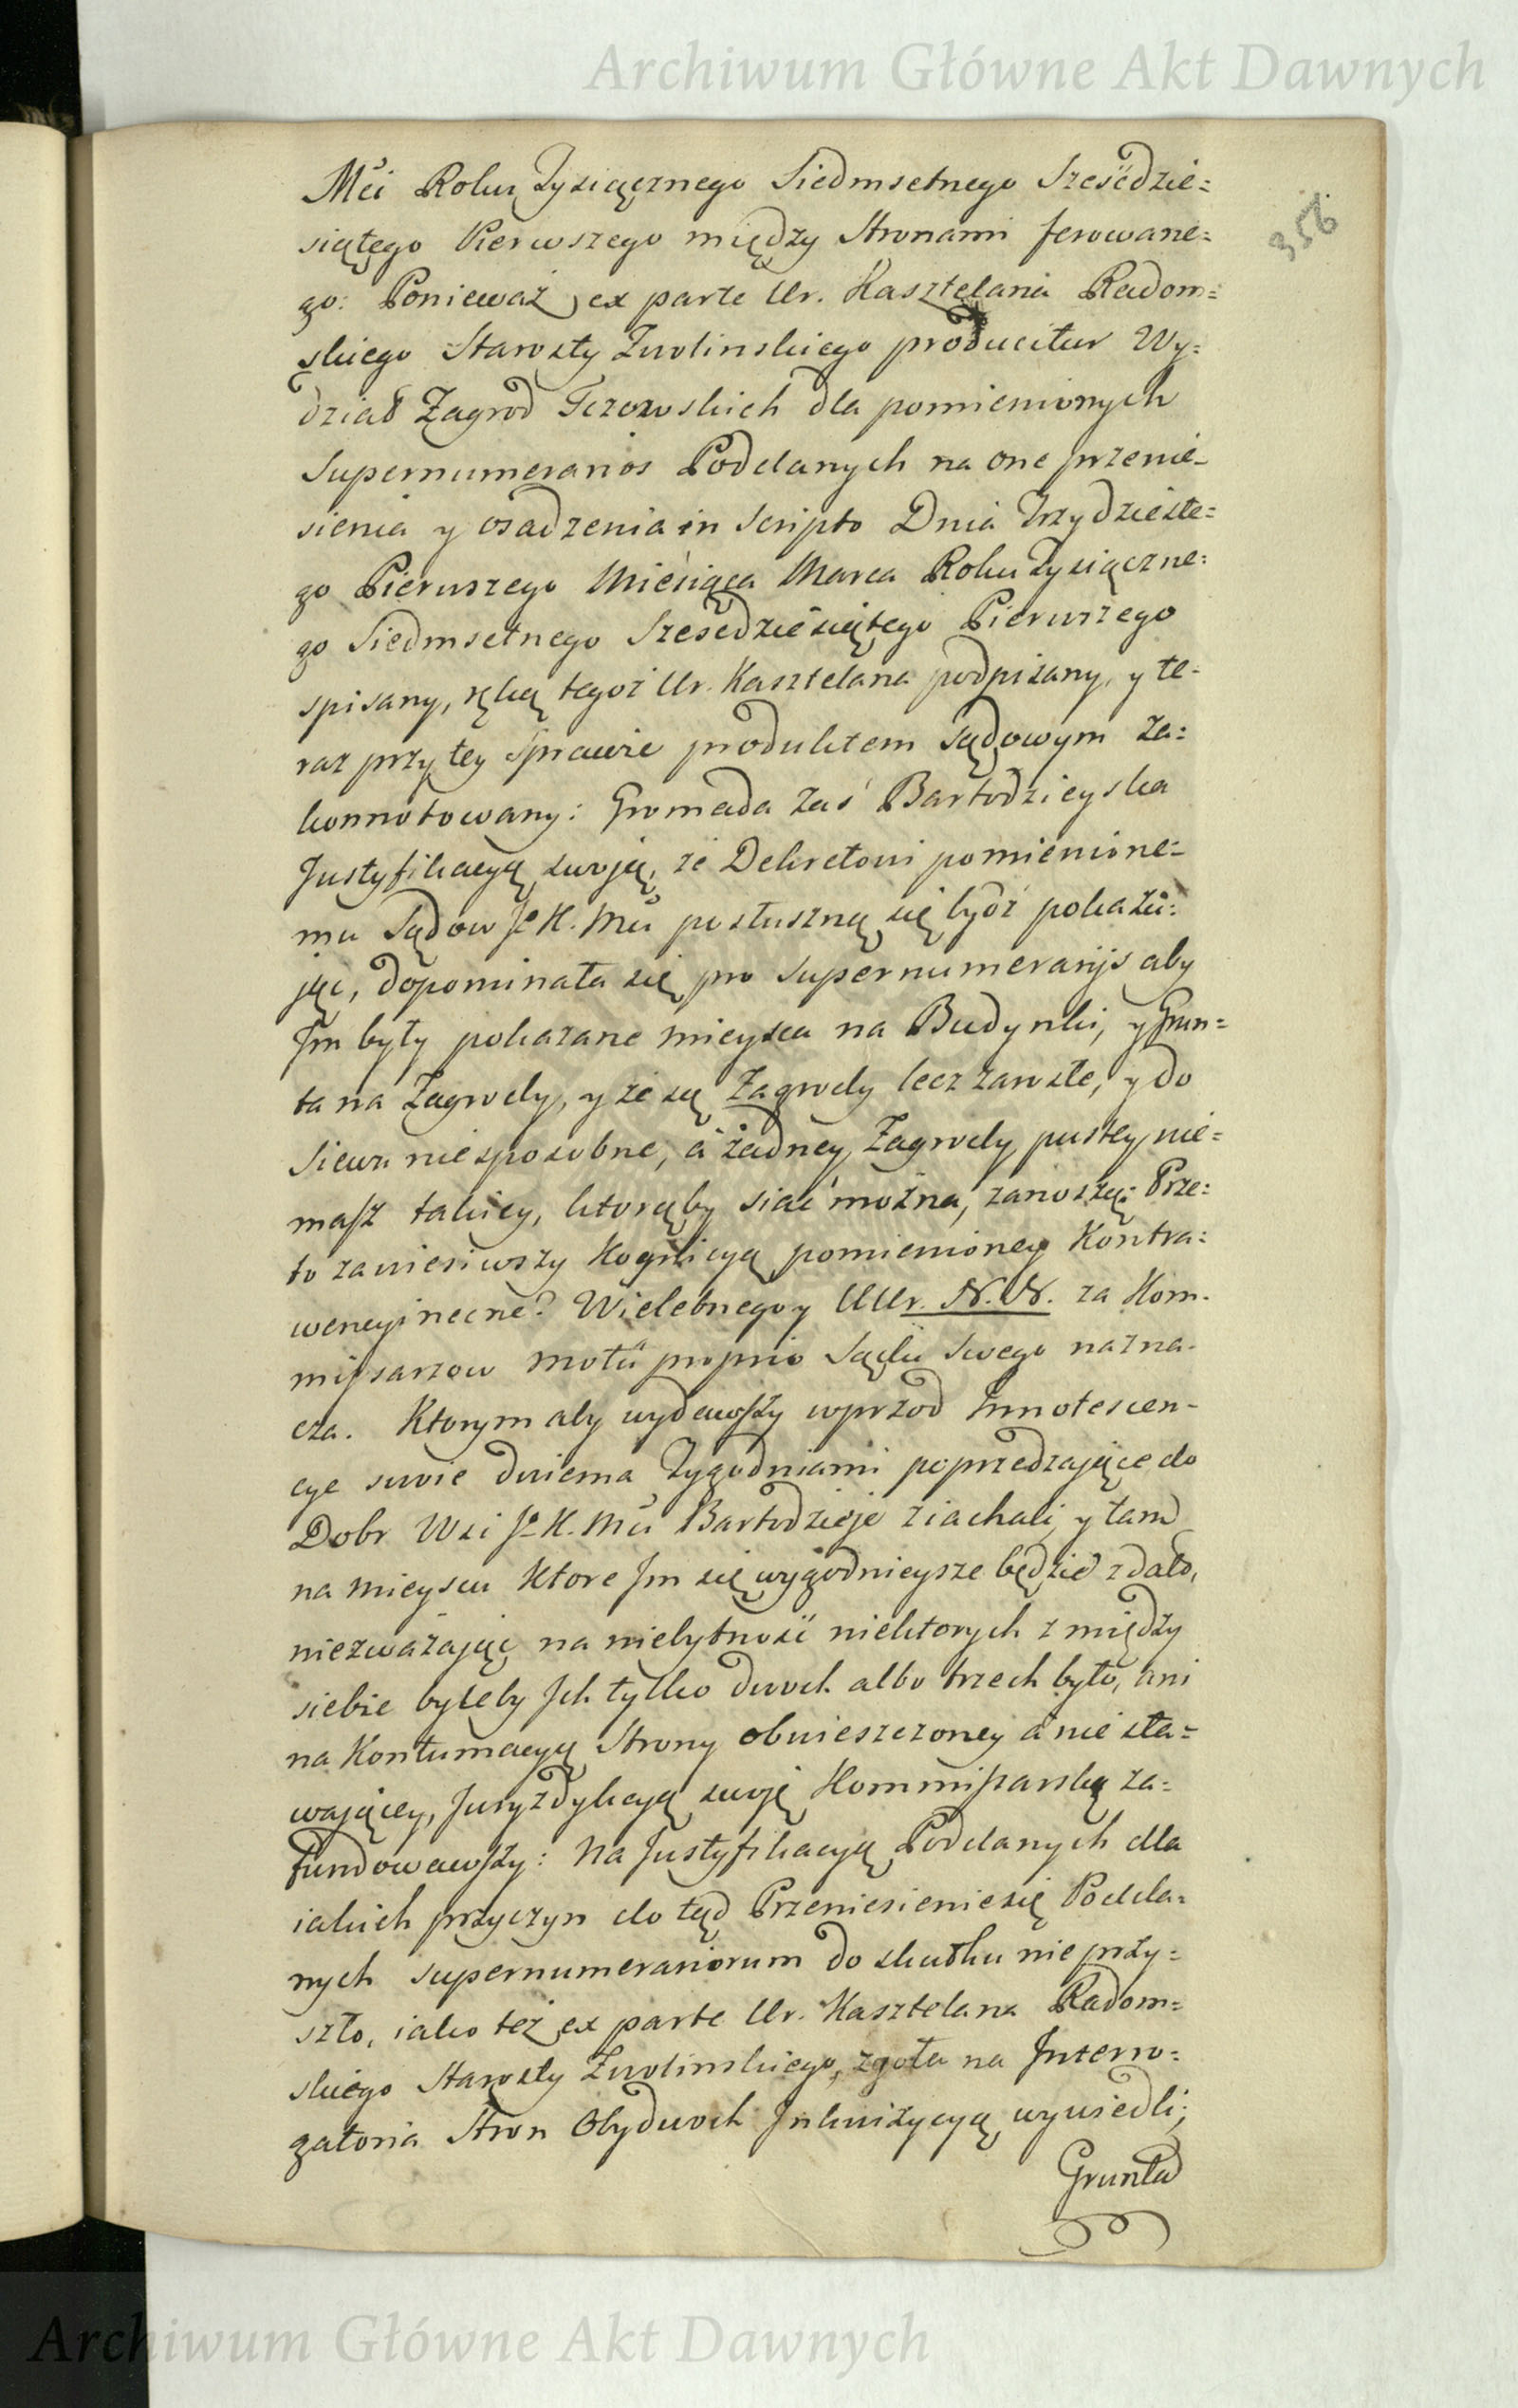 Archiwum Główne Akt Dawnych
356.
Mci Roku Tysiącznego Siedmsetnego Sześcdzie=
siątego Pierwszego między Stronami ferowane=
go: Ponieważ ex parte Ur. Kasztelana Radom=
skiego Starosty Zwolinskiego producitur Wy=
dział Zagrod Tczowskich dla pomienionych
Supernumerarios Poddanych na one przenie=
sienia y osadzenia in Scripto Dnia Trzydzieste=
go Pierwszego Miesiąca Marca Roku Tysiączne=
go Siedmsetnego Szescdziesiątego Pierwszego
spisany, ręką tegoż Ur. Kasztelana podpisany, y te=
raz przy tey Sprawie produktem Sądowym za=
konnotowany: Gromada zaś Bartodzieyska
Justyfikacyą swoją, że Dekretowi pomienione=
mu Sądow J. K. Mci posłuszną się bydź pokazu=
jąc, dopominała się pro Supernumerarijs aby
Im były pokazane mieysca na Budynki, y Grun=
ta na Zagrody, y że są Zagrody lecz zarosłe, y do
Siewu niesposobne, a żadney Zagrody pustey nie=
masz takiey, ktorąby siać można, zanoszą: Prze=
to zawiesiwszy Kognicyą pomienioney Kontra=
wencyi necne? Wielebnego y UUr. N. N. za Kom=
missarzow motu proprio Sądu Swego nazna=
cza. Ktorym aby wydawszy wprzod Innotescen=
cye swoie dwiema Tygodniami poprzedzające do
Dobr Wsi J. K. Mci Bartodzieje ziachali, y tam
na mieyscu Ktore Im się wygodnieysze będzie zdało,
niezważając na niebytność niektorych z między
siebie byleby Ich tylko dwoch albo trzech było, ani
na Kontumacyą Strony obwieszczoney a nie sta=
wającey, Juryzdykcyą swoję Kommissarską za=
fundowawszy: Na Justyfikacyą Poddanych dla
iakich przyczyn do tąd Przeniesienie się Podda=
nych supernumerariorum do skutku nie przy=
szło, iako też ex parte Ur. Kasztelana Radom=
skiego Starosty Zwolinskiego, zgoła na Interro=
gatoria Stron Obydwoch Inkwizycyą wywiedli;
Grunta
Archiwum Główne Akt Dawnych